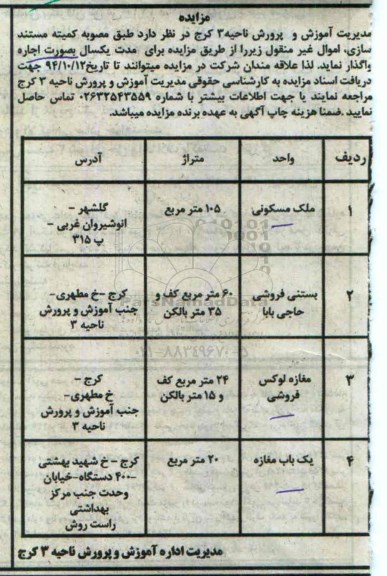 مزایده
مدیریت آموزش و پرورش ناحیه۳ کرج در نظر دارد طبق مصوبه کمیته مستند
سازی، اموال غیر منقول زیررا از طریق مزایده برای مدت یکسال بصورت اجاره
واگذار نماید. لذا علاقه مندان شرکت در مزایده میتوانند تا تاریخ۹۴/۱۰/۱۲ جهت
دریافت اسناد مزایده به کارشناسی حقوقی مدیریت آموزش و پرورش ناحیه ۳ کرج
مراجعه نمایند یا جهت اطلاعات بیشتر با شماره ۰۲۶۳۲۵۴۳۵۵۹ تماس حاصل
نمایید .ضمنا هزینه چاپ آگهی به عهده برنده مزایده میباشد.
ردیف واحد متراژ آدرس
۱ ملک مسکونی ۱۰۵ متر مربع گلشهر –
انوشیروان غربی –
پ ۳۱۵
۲ بستنی فروشی ۶۰ متر مربع کف و کرج –خ مطهری–
حاجی بابا ۳۵ متر بالکن جنب آموزش و پرورش
ناحیه ۳
۳ مغازه لوکس ۲۴ متر مربع کف کرج –
فروشی و ۱۵ متر بالکن خ مطهری–
جنب آموزش و پرورش
ناحیه ۳
۴ یک باب مغازه ۲۰ متر مربع کرج – خ شهید بهشتی
–۴۰۰ دستگاه–خیابان
وحدت جنب مرکز
بهداشتی
راست روش
مدیریت اداره آموزش و پرورش ناحیه ۳ کرج